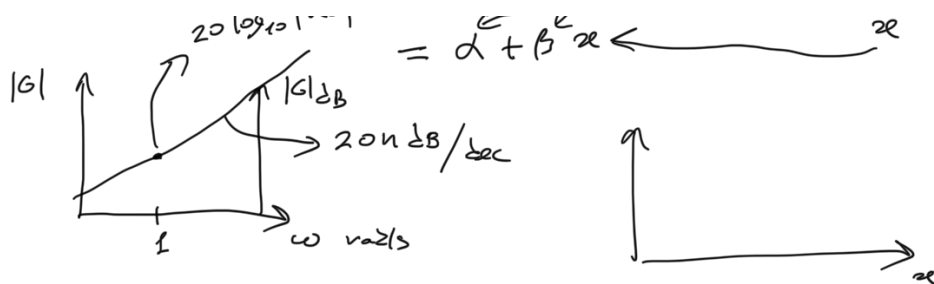 20 log10
= α + β x
x
|G|
|G|dB
20n dB/dec
1
ω rad/s
x